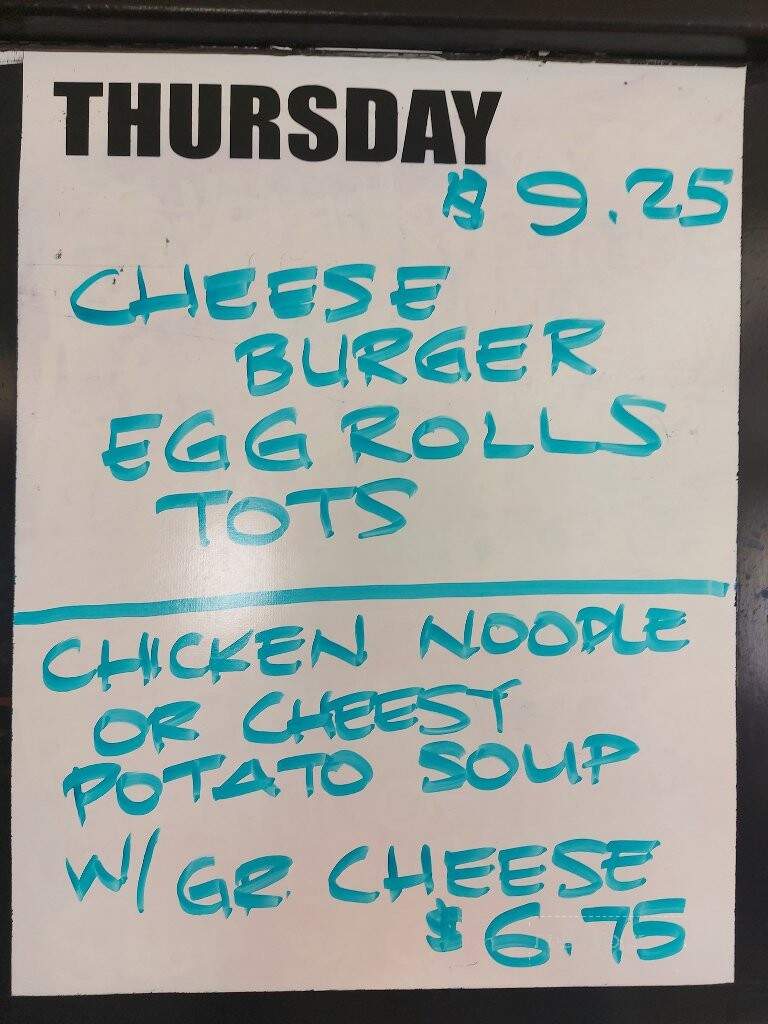 THURSDAY
$9.25
CHEESE
BURGER
EGG ROLLS
TOTS
CHICKEN NOODLE
OR CHEESY
POTATO SOUP
W/ GR. CHEESE
$6.75